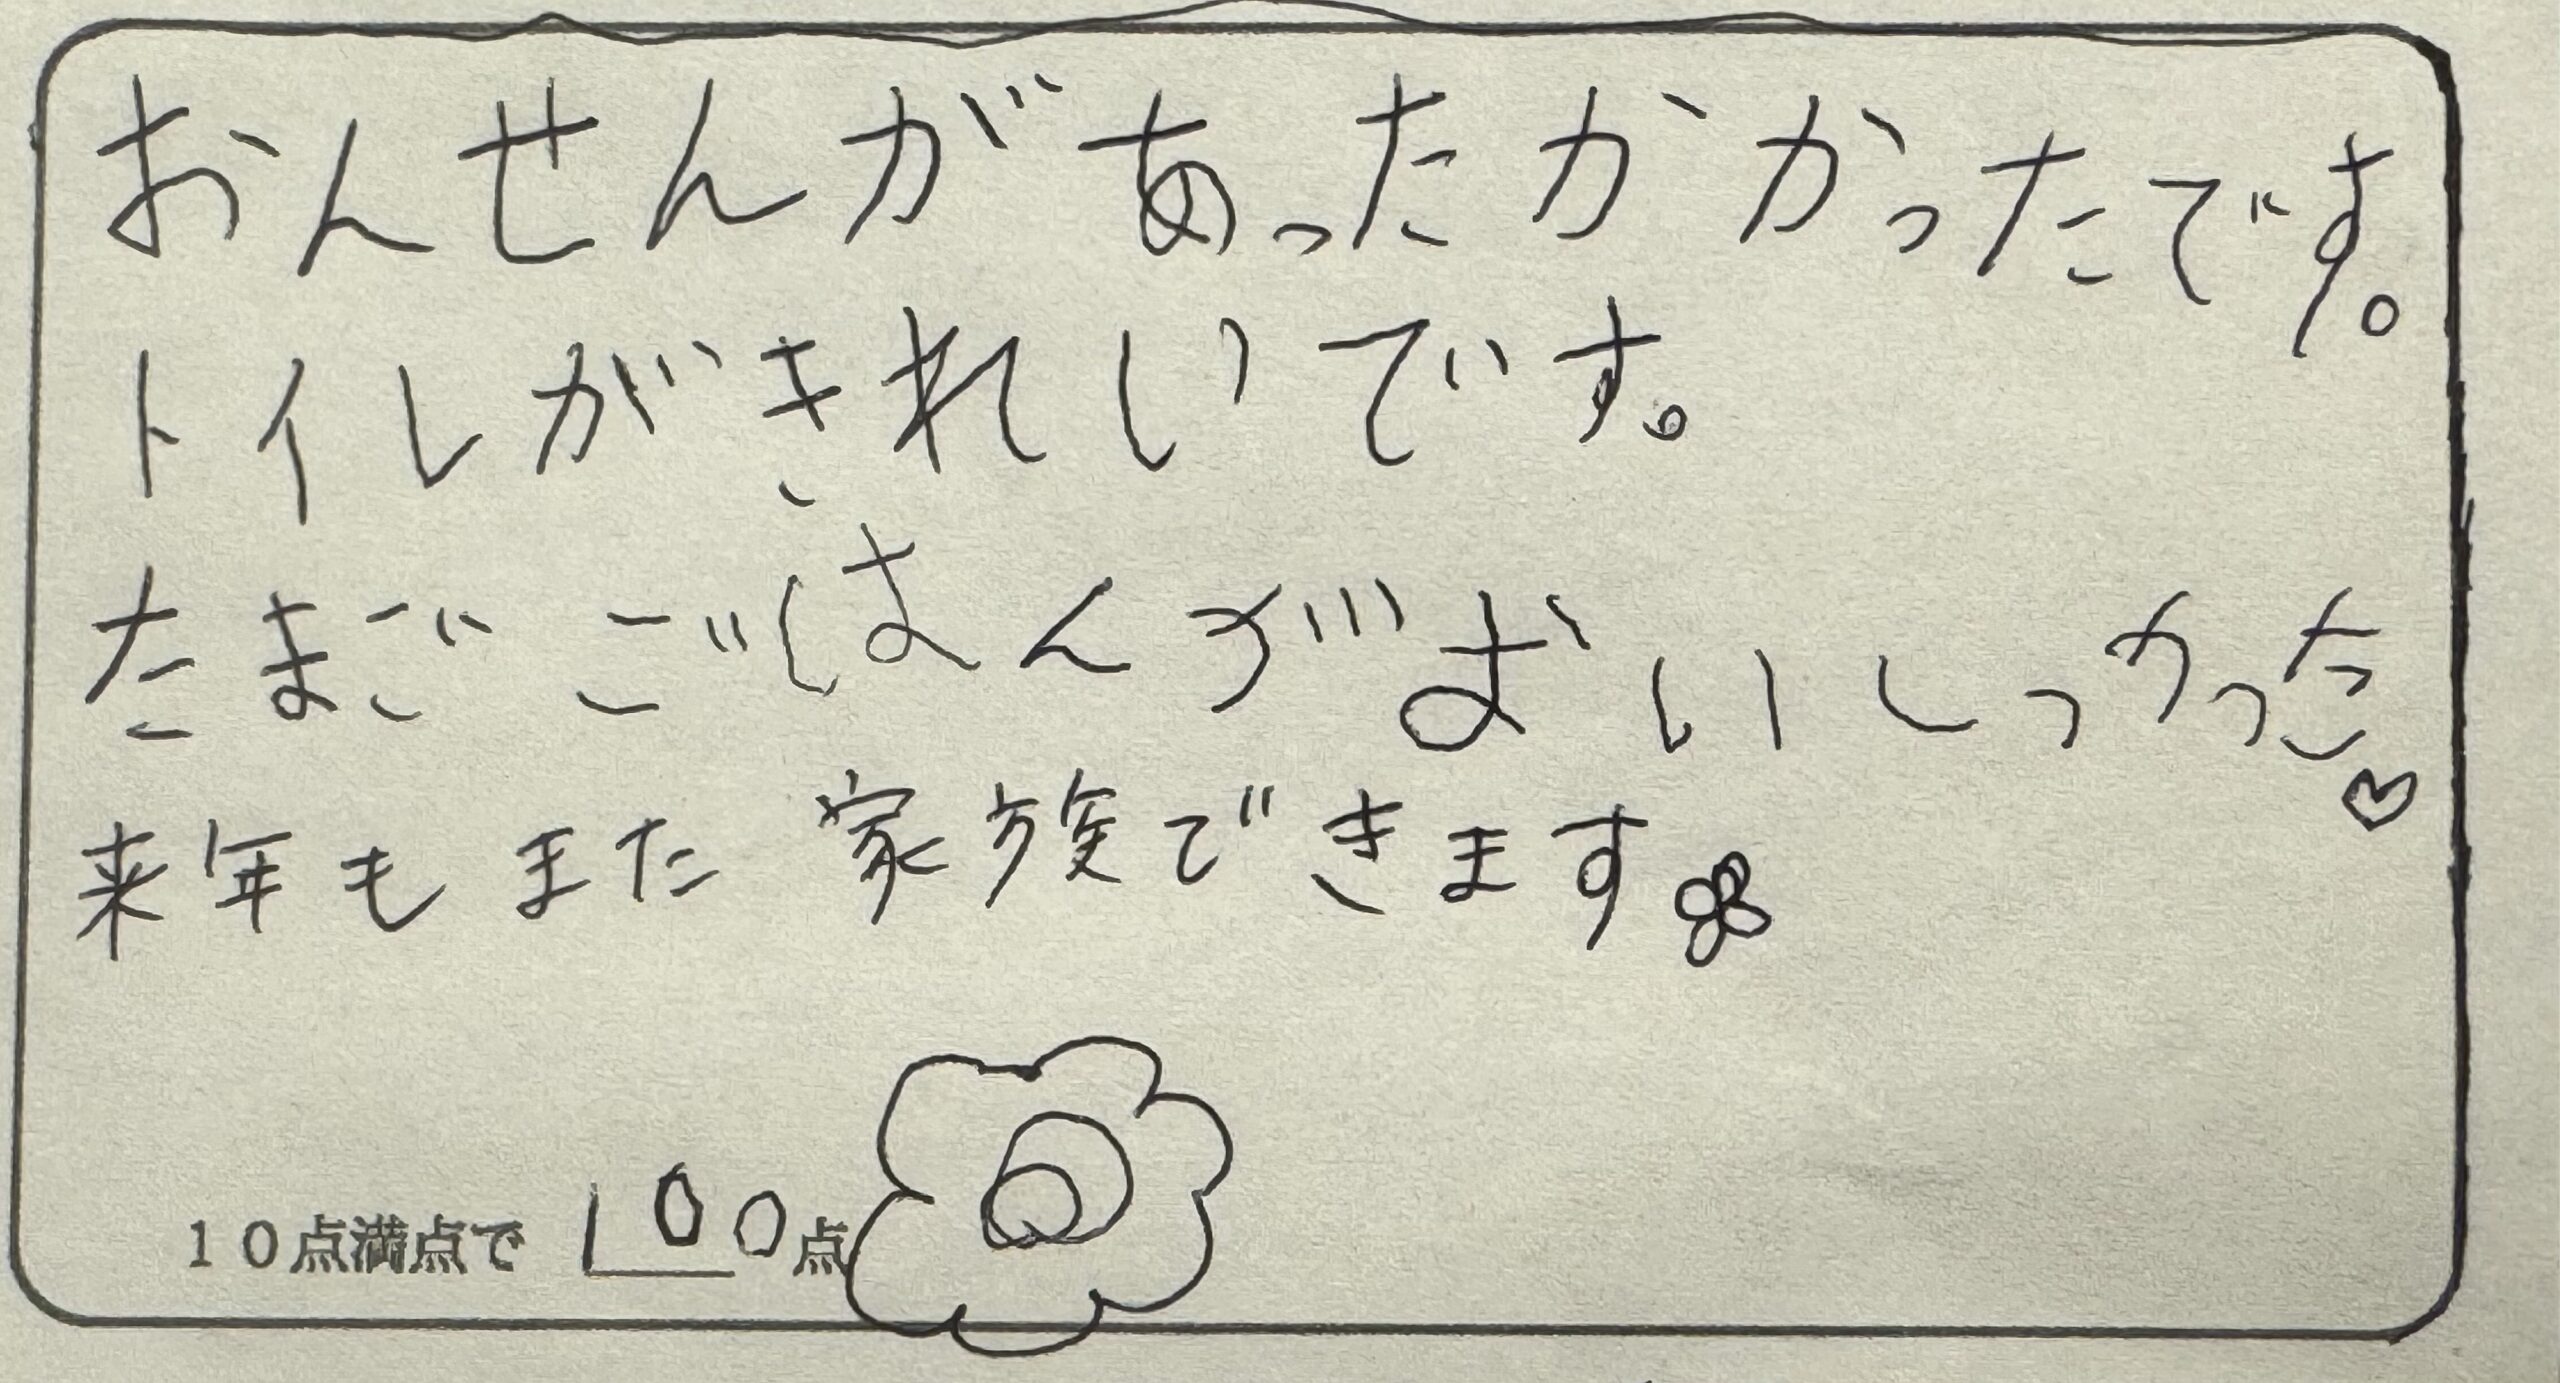 おんせんがあったかかったです。
トイレがきれいです。
たまごごはんがおいしっかった♡
来年もまた家族できます
10点満点で100点